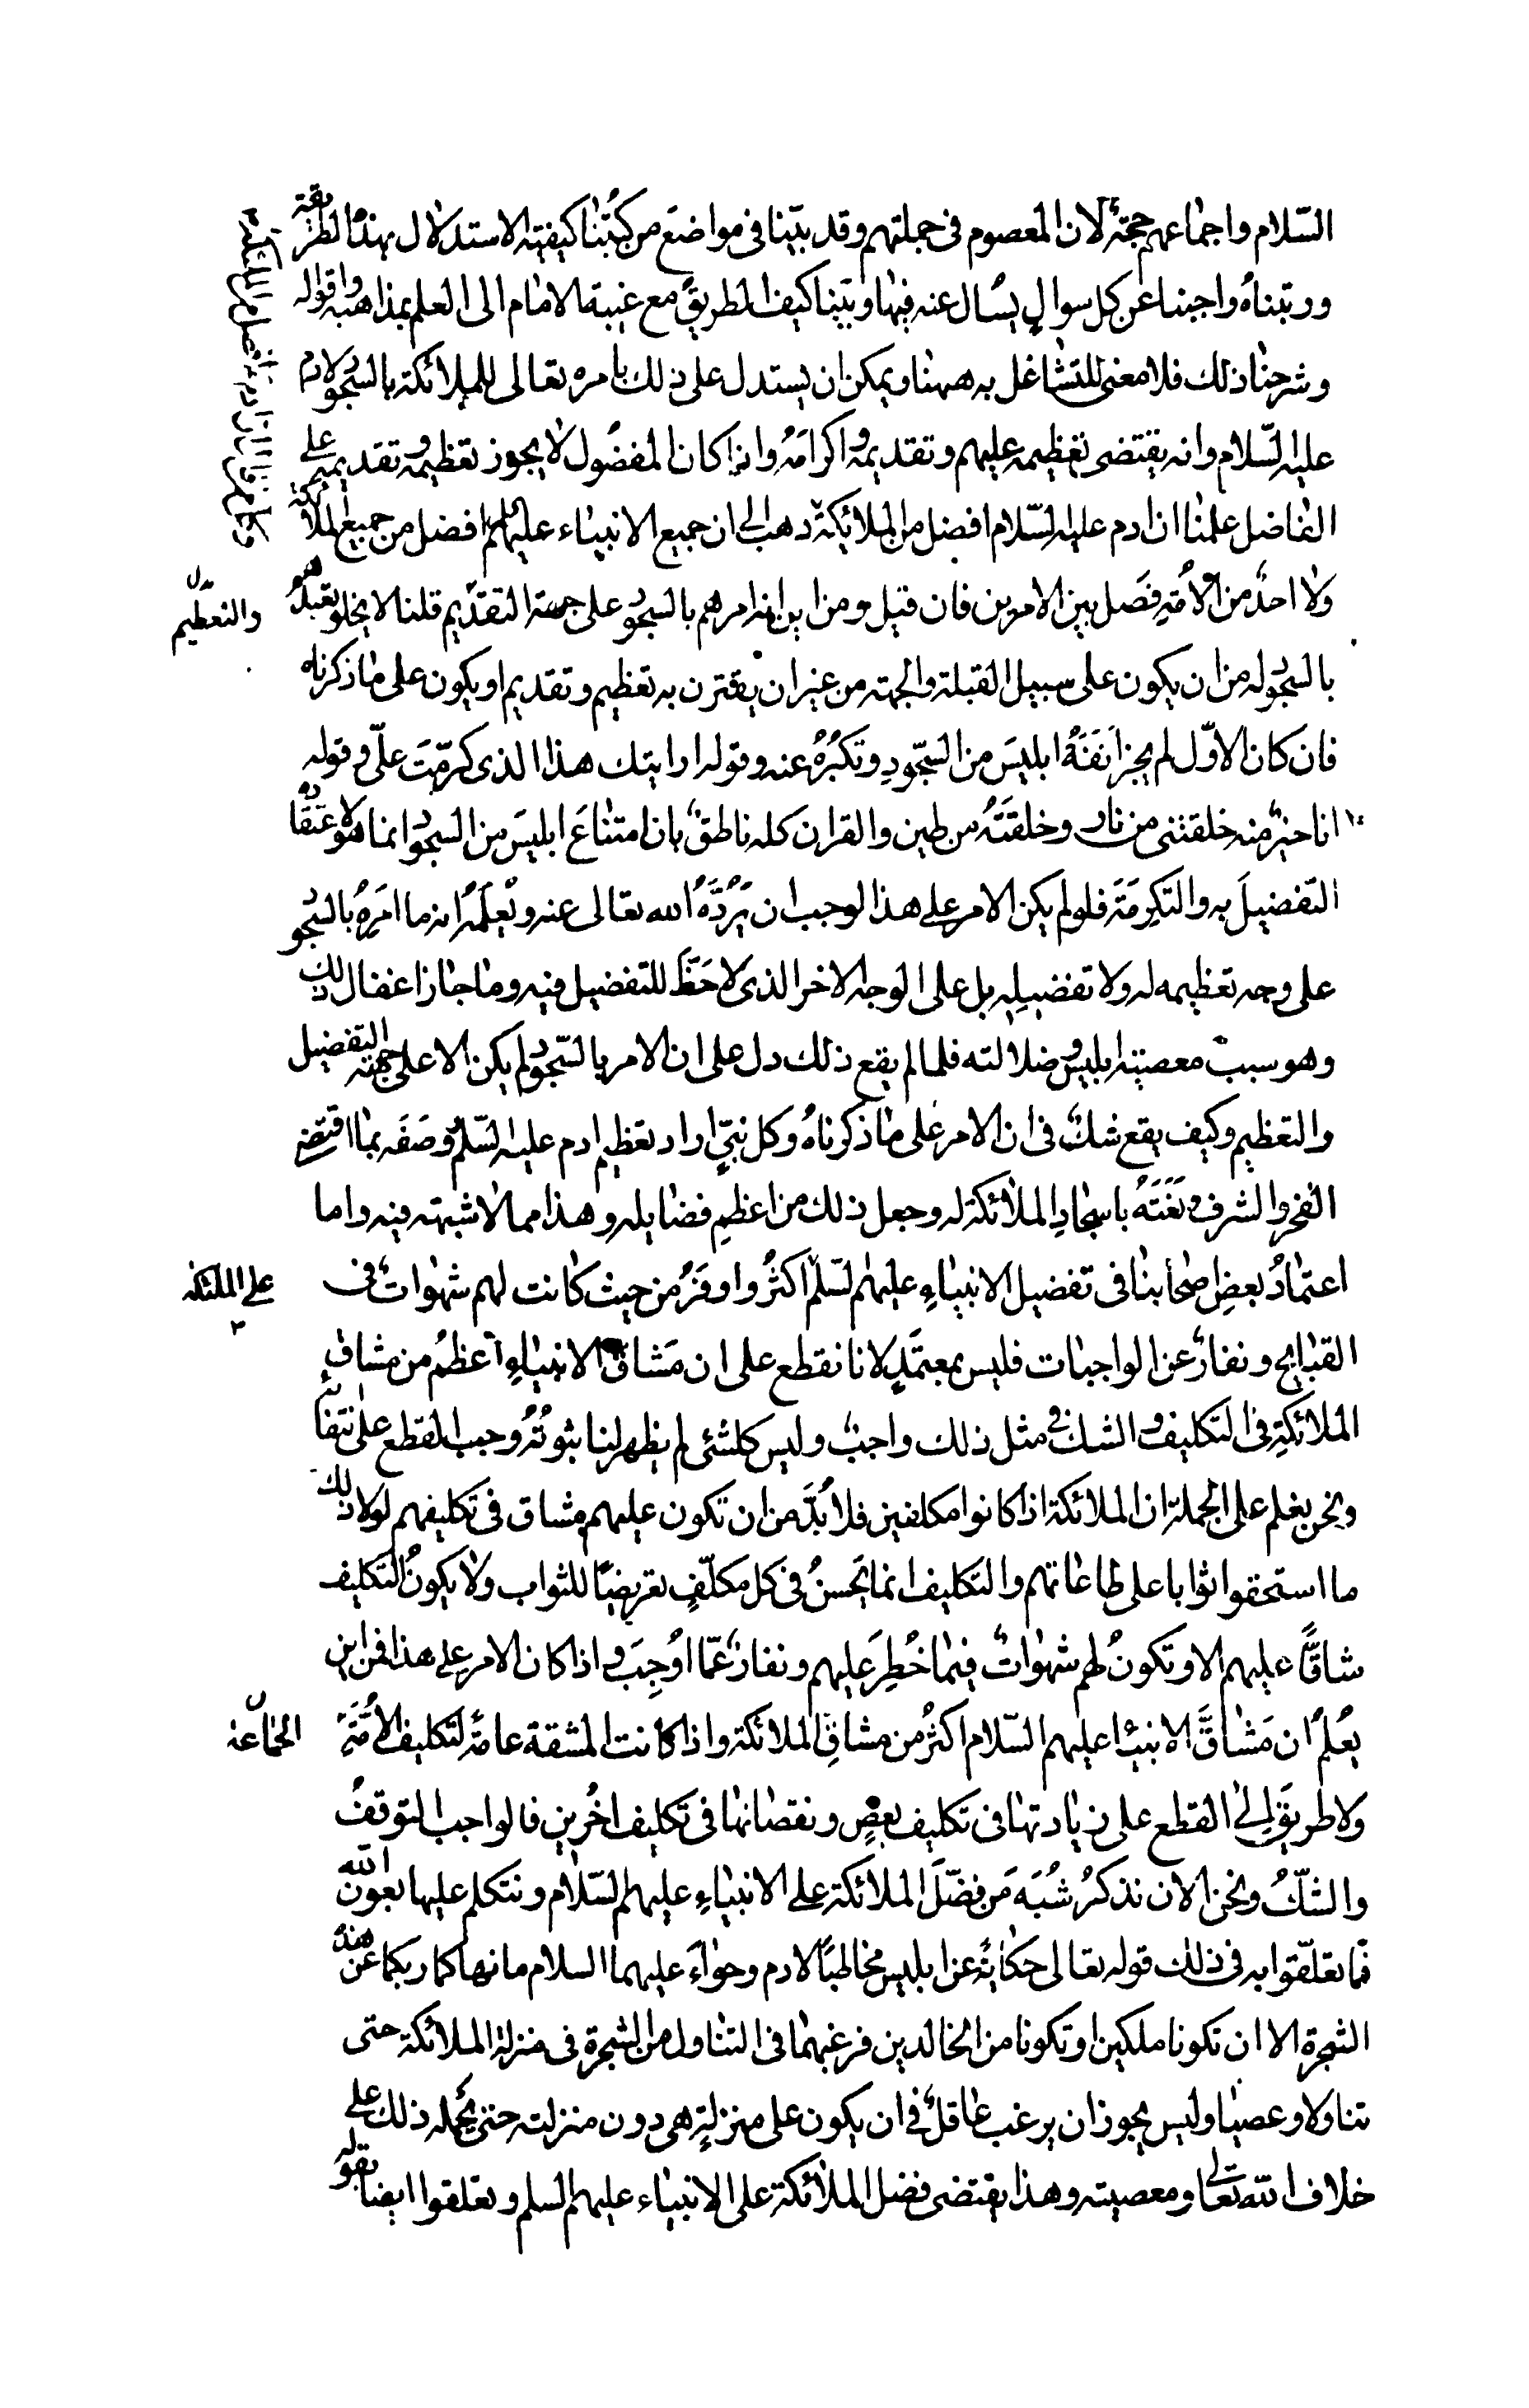 السّلام واجماعهم حجّةٌ لان المعصوم فى جملتهم وقد بيّنا فى مواضعَ من كُتُبنا كيفيّة الاستدلال بهذه الطريقة
ورتبناهُ واجبنا عن كل سوالٍ يُسْال عنه فيها وبيّنا كيف الطريقُ مع غيبة الامام الى العلم بمذاهبه واقواله
وشرحنا ذلك فلا معنى للتشاغل به ههنا ويمكن ان يستدل على ذلك بامره تعالى للملائكة بالسجود لادم
عليه السّلام وانه يقتضى تعظيمه عليهم وتقديمه واكرامَهُ واذا كان المفضُول لا يجوز تعظيمه وتقديمه على
الفاضل علمنا ان ادم عليه السّلام افضل من الملائكة ذهب الى ان جميع الانبياء عليهم السلم افضل من جميع الملائكة
ولا احدٌ من الامّةِ فَصَل بين الامرين فان قيل ومن اين انه امرهم بالسجود على جهة التقديم قلنا لا يخلو تعبدهم
والتعظيم
بالسجود له من ان يكون على سبيل القبلة والجهة من غير ان يقترن به تعظيم وتقديم او يكون على ما ذكرناه
فان كان الاوّل لم يجز اَنَفَتُهُ ابليسَ من السّجودِ وتكبّرُهُ عنه وقوله ارايتك هذا الذى كرّمتَ علىّ وقوله
انا خيرٌ منه خلقتنى من نارٍ وخلقتَهُ من طين والقران كله ناطقٌ بان امتناعَ ابليسَ من السجود انما هو لاعتقاده
التفضيلَ به والتكرِمَةَ فلو لم يكن الامر على هذا لوجب ان يَرُدَّهُ الله تعالى عنه ويُعلمَهُ انه ما امَرهُ بالسجود
على وجه تعظيمه له ولا تفضيلِهِ بل على الوجه الاخر الذى لا حَظَّ للتفضيل فيه وما جاز اغفال ذلك
وهو سببُ معصية ابليس وضلالته فلما لم يقع ذلك دل على ان الامر بالسّجود لم يكن الا على جهة التفضيل
والتعظيم وكيف يقع شكٌ فى ان الامر على ما ذكرناهُ وكل نبىٍّ اراد تعظيم ادم عليه السّلم وصَفَه بما اقتضى
الفخر والشرف ونَعَتَهُ باسجادِ الملائكة له وجعل ذلك من اعظمِ فضايله وهذا مما لا شبهة فيه واما
اعتمادُ بعضِ اصحابنا فى تفضيل الانبياءِ عليهم السّلم اكثرُ واوفَرُ من حيث كانت لهم شهواتٌ فى
على الملئكة
القبايح ونفارٌ عن الواجبات فليس بمعتمَدٍ لانا نقطع على ان مَشاقّ الانبياءِ اعظمُ من مشاقِ
الملائكةِ فى التكليف والشك فى مثل ذلك واجبٌ وليس كلشئى لم يظهر لنا ثبوتُهُ وجب القطع على انتفائه
ونحن نعلم على الجملة ان الملائكة اذا كانوا مكلفين فلا بُدَّ من ان تكون عليهم مشاق فى تكليفهم لولا ذلك
ما استحقوا ثوابا على طاعاتهم والتكليف انما يَحسنُ فى كل مكلّفٍ تعريضًا للثواب ولا يكونُ التكليف
شاقًّا عليهم الا وتكونُ لهم شهواتٌ فيما حُظِرَ عليهم ونفارٌ عمّا اُوجِبَ واذا كان الامر على هذا فمن اين
يُعْلم ان مَشاقَّ الانبياء عليهم السّلام اكثرُ من مشاقِ الملائكة واذا كانت المشقة عامةً لتكليف الاُمّةِ
الجماعة
ولا طريق الى القطع على زيادتها فى تكليف بعضٍ ونقصانها فى تكليف اخرين فالواجب التوقفُ
والشّكُ ونحن الان نذكرُ شُبَه مَن فضّلَ الملائكة على الانبياءِ عليهم السّلام ونتكلم عليها بعون الله
فما تعلّقوا به فى ذلك قوله تعالى حكايةً عن ابليس مخاطبًا لادم وحواءَ عليهما السلام ما نهاكما ربكما عن هذه
الشجرة الا ان تكونا ملكين او تكونا من الخالدين فرغبهما فى التناول من الشجرة فى منزلة الملائكة حتى
تناولا وعصيا وليس يجوز ان يرغب عاقلٌ فى ان يكون على منزلةٍ هى دون منزلته حتى يحمله ذلك على
خلاف الله تعالى ومعصيته وهذا يقتضى فضل الملائكة على الانبياء عليهم السلم وتعلقوا ايضا بقوله